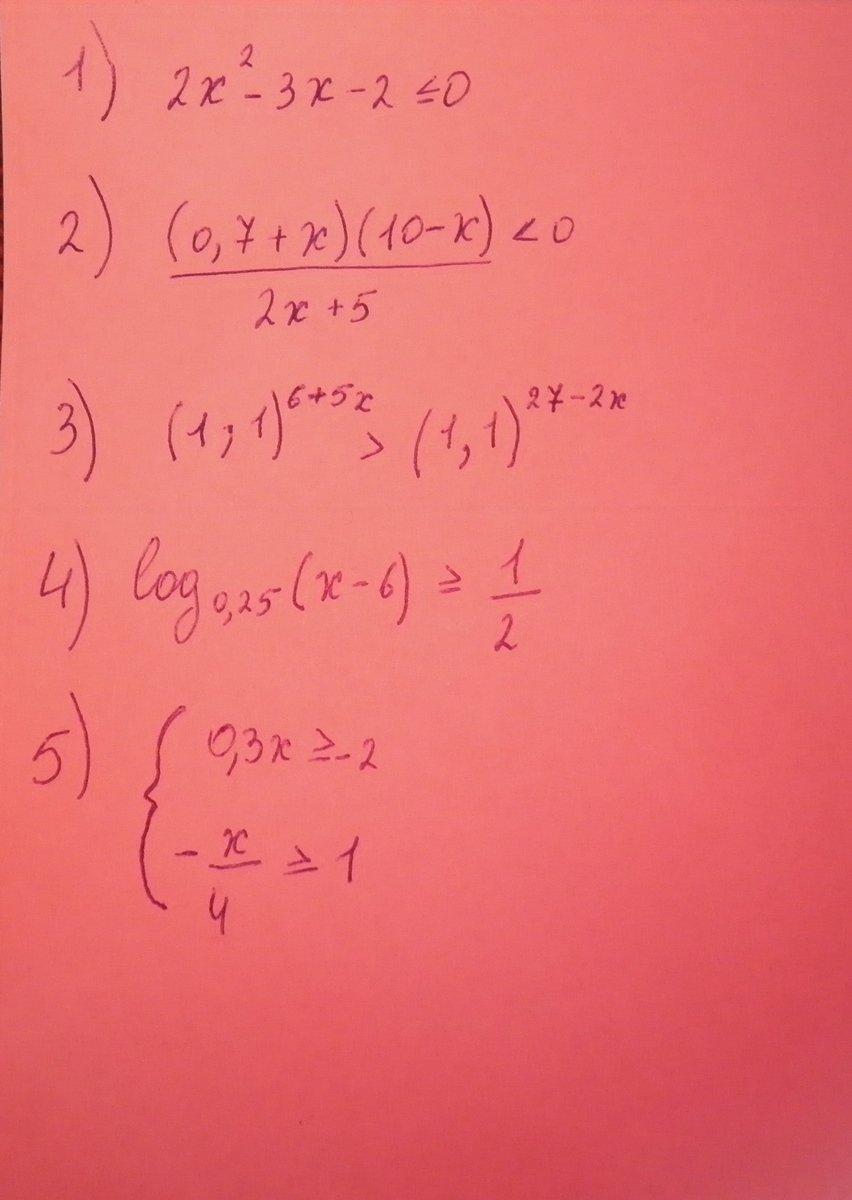 1) 2x² - 3x - 2 ≤ 0
2) (0,7 + x)(10 - x) / 2x + 5 < 0
3) (1,1)^6+5x > (1,1)^27-2x
4) log0,25(x - 6) ≥ 1/2
5) { 0,3x ≥ -2
- x/4 ≥ 1